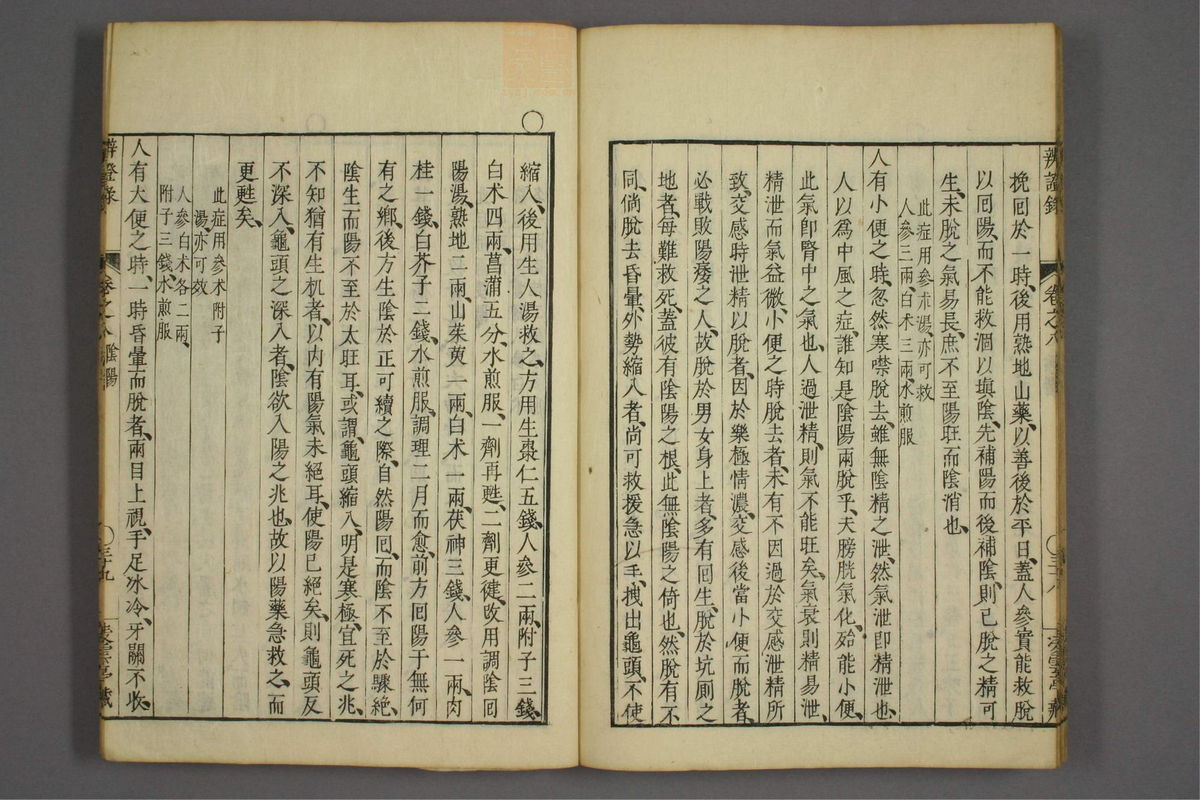 辨證錄 卷之六
挽回於一時、後用熟地山藥、以善後於平日、蓋人參實能救脫
以回陽、而不能救涸以塡陰、先補陽而後補陰、則已脫之精可
生、未脫之氣易長、庶不至陽旺而陰消也、
此症用參朮湯、亦可救
人參三兩白朮三兩、水煎服
人有小便之時、忽然寒噤脫去、雖無陰精之泄、然氣泄即精泄也、
人以爲中風之症、誰知是陰陽兩脫乎、夫膀胱氣化、始能小便、
此氣卽腎中之氣也、人過泄精、則氣不能旺矣、氣衰則精易泄、
精泄而氣益微、小便之時脫去者、未有不因過於交感泄精所
致、交感時泄精以脫者、因於樂極情濃、交感後當小便而脫者、
必戰敗陽痿之人、故脫於男女身上者、多有回生、脫於坑厠之
地者、每難救死、蓋彼有陰陽之根、此無陰陽之倚也、然脫有不
同、倘脫去昏暈、外勢縮入者、尚可救援、急以手、拽出龜頭、不使
縮入、後用生人湯救之、方用生棗仁五錢、人參二兩、附子三錢、
白朮四兩、菖蒲五分、水煎服、一劑再甦、二劑更健、改用調陰回
陽湯、熟地二兩、山茱萸一兩、白朮一兩、茯神三錢、人參一兩、肉
桂一錢、白芥子二錢、水煎服、調理二月而愈、前方回陽于無何
有之鄕、後方生陰於正可續之際、自然陽回、而陰不至於驟絕、
陰生而陽不至於太旺耳、或謂、龜頭縮入、明是寒極、宜死之兆、
不知猶有生机者、以內有陽氣未絕耳、使陽已絕矣、則龜頭反
不深入、龜頭之深入者、陰欲入陽之兆也、故以陽藥急救之、而
更甦矣、
此症用參朮附子
湯、亦可效
人參白朮各二兩、
附子三錢、水煎服
人有大便之時、一時昏暈而脫者、兩目上視、手足冰冷、牙關不收、
陰陽